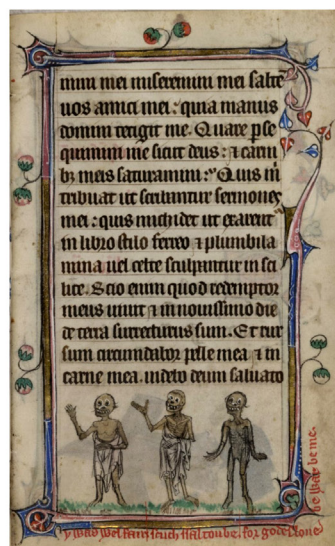 mini mei miseremini mei salte
uos amici mei: quia manus
domini tetigit me. Quare p̱se
quimini me sicut deus: ⁊ carni
bꝫ meis saturamini: Quis m̄
tribuat ut scribantur sermones
mei: quis michi det ut exarent̄
in libro stilo ferreo ⁊ plumbi la
mina uel celte sculpantur in si
lice. Scio enim quod redemptor
meus uiuit ⁊ in nouissimo die
de terra surrecturus sum. Et rur
sum circumdabor pelle mea ⁊ in
carne mea uidebo deum saluato
y was wel fair such schal tou be. for godes loue
be war be me.